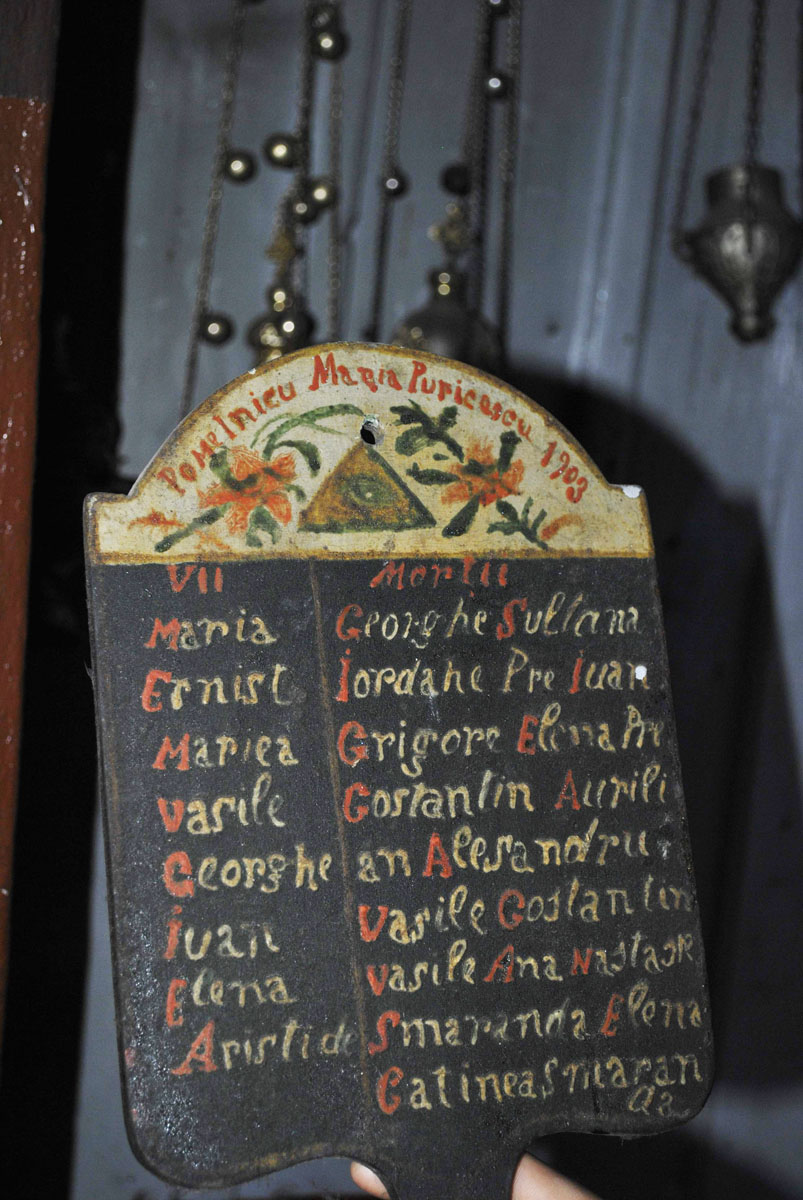 Pomelnicu Maria Puricescu 1903
VII
Morții
Maria
Ernist
Mariea
Vasile
Georghe
iuan
Elena
Aristide
Georghe Sultana
iordahe Pre Iuan
Grigore Elena Pre
Costantin Aurili
an Alesandru
Vasile Costantin
Vasile Ana Nastasie
Smaranda Elena
Catinea smaran
da